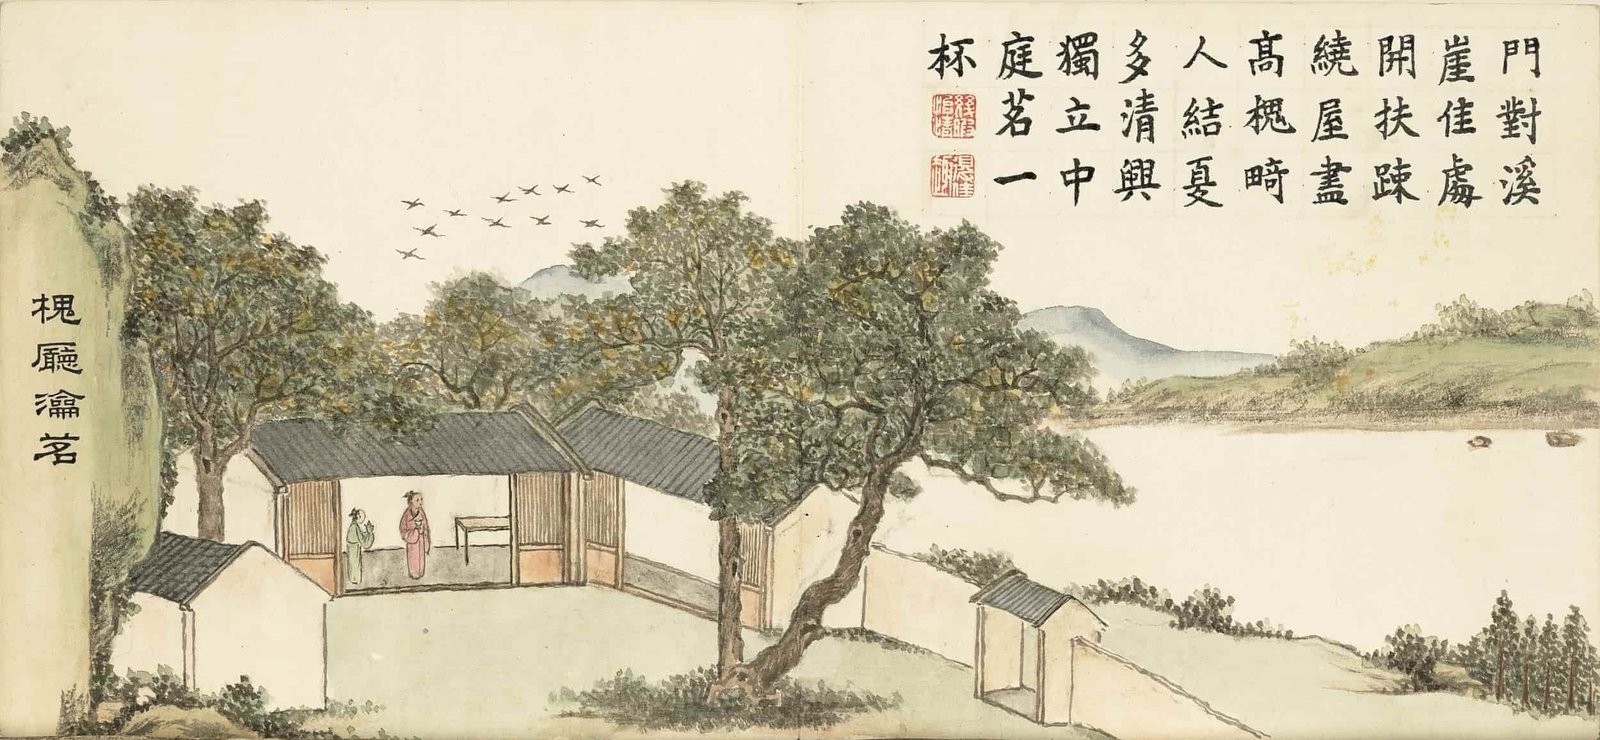 門對溪
崖佳處
開扶疎
繞屋盡
髙槐畸
人結夏
多清興
獨立中
庭茗一
杯
槐廳瀹茗